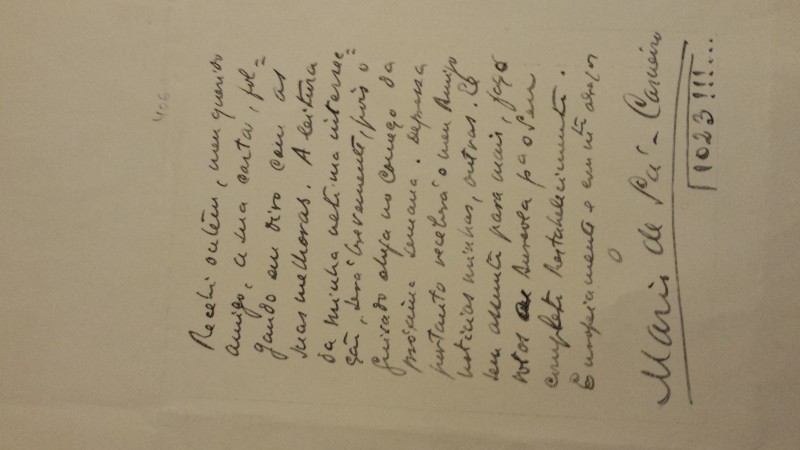 Recebi ontem, meu querido
amigo, a sua carta, fol=
gando em oiro com as
suas melhoras. A leitura
da minha intersec=
ção, será brevemente, pois o
Guisado chega no começo da
próxima semana. Depressa
portanto receberá o meu Amigo
notícias minhas, outras. E
sem assunto para mais, faço
votos de Aurorea pa o seu
completo restabelecimento.
Europeiamente e em mtº abraços
O
Mario de Sá-Carneiro
1023!!!...
406